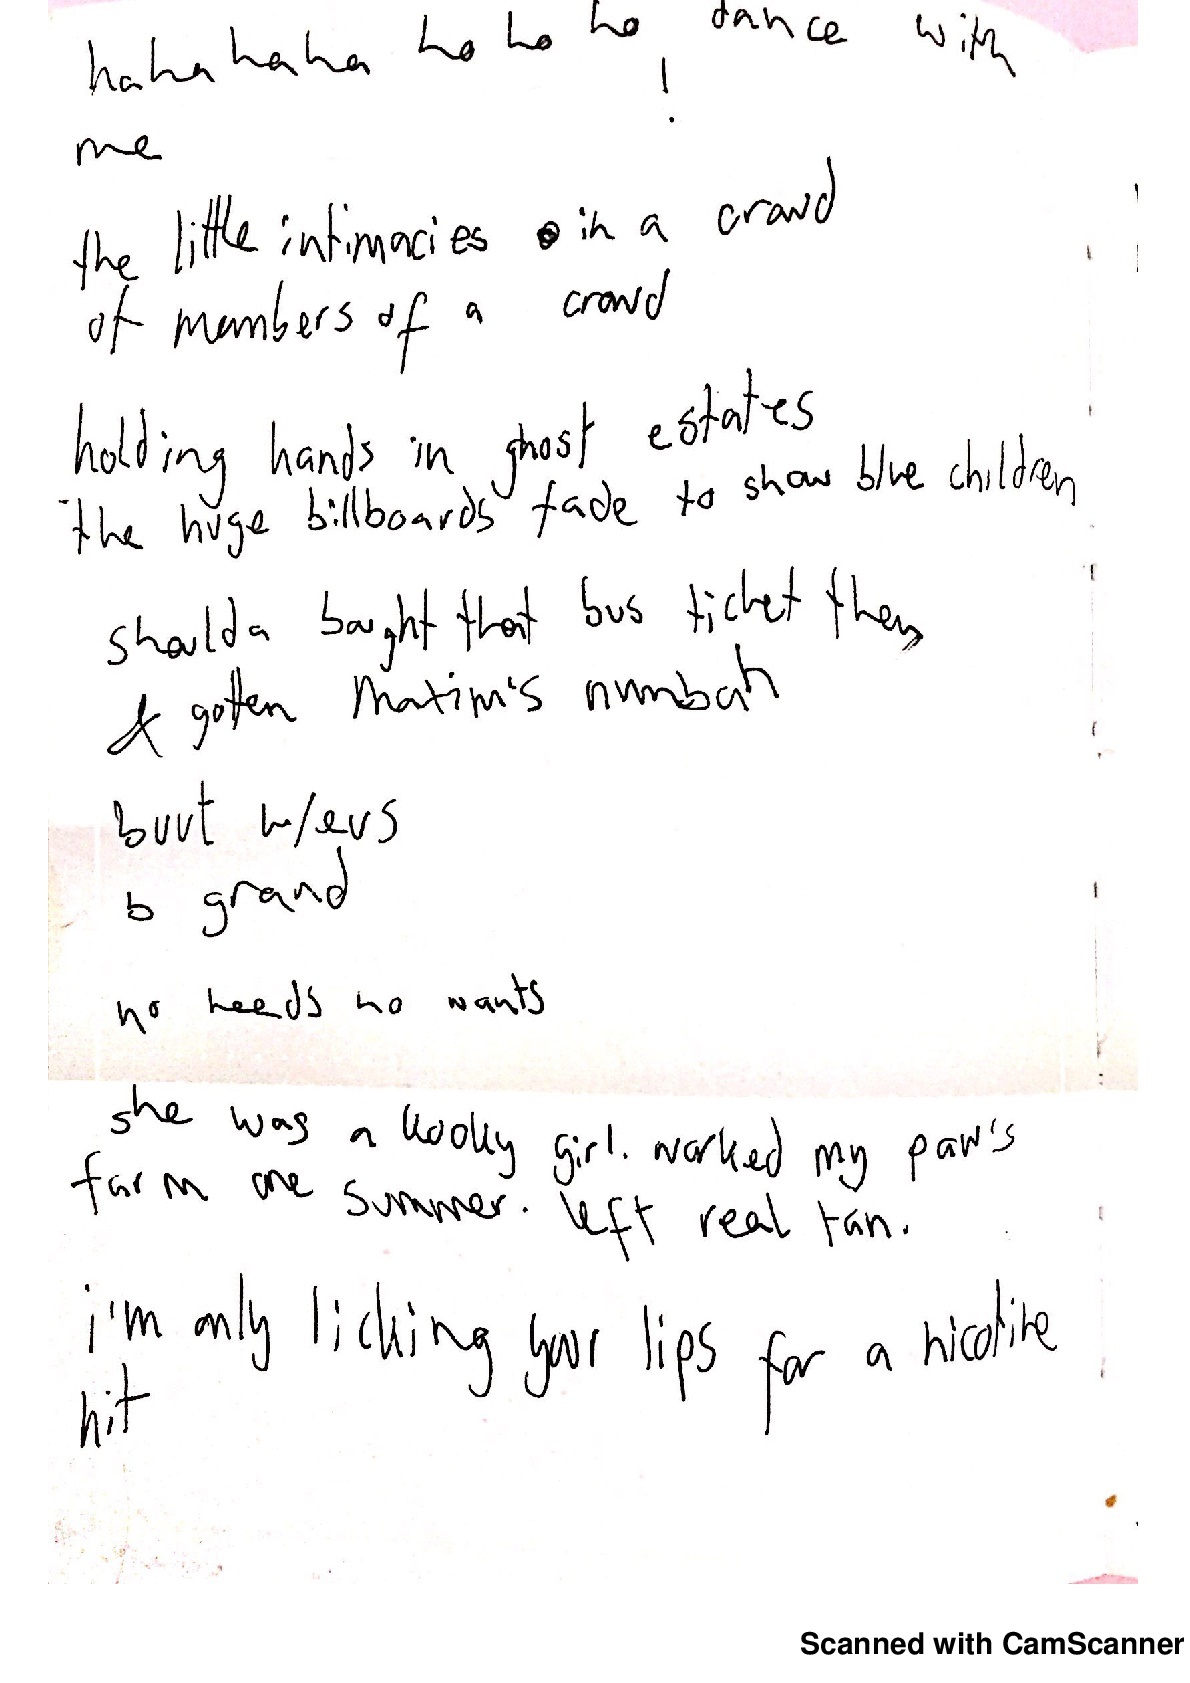 hahahaha ho ho ho ! dance with
me
the little intimacies in a crowd
of members of a crowd
holding hands in ghost estates
the huge billboards fade to show blue children
shoulda bought that bus ticket then
& gotten Maxim's numbah
buut w/evs
b grand
no needs no wants
she was a kooky girl. worked my paw's
farm one summer. left real tan.
i'm only licking your lips for a nicotine
hit
Scanned with CamScanner